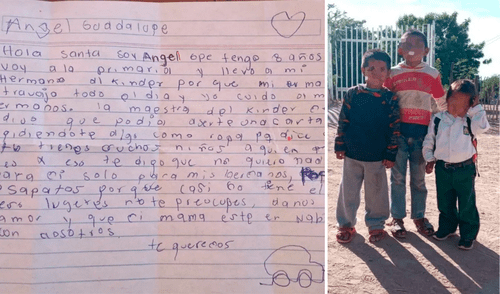 Angel Guadalupe
Hola santa soy Angel tengo 8 años
voy a la primaria y llevo a mi
Hermano al kinder por que mi
travaja todo el dia y yo cuido a mi
ermanos. la maestra del kinder
que podia una carta
pidiendote algo como ropa
tu tienes muchos niños a quien
a eso te digo que no quiero nad
para mi solo para mis hermanos,
sapatos porque casi no tiene
si lugeres no te preocupes, danos
amor y que mi mama este
con nosotros
te queremos